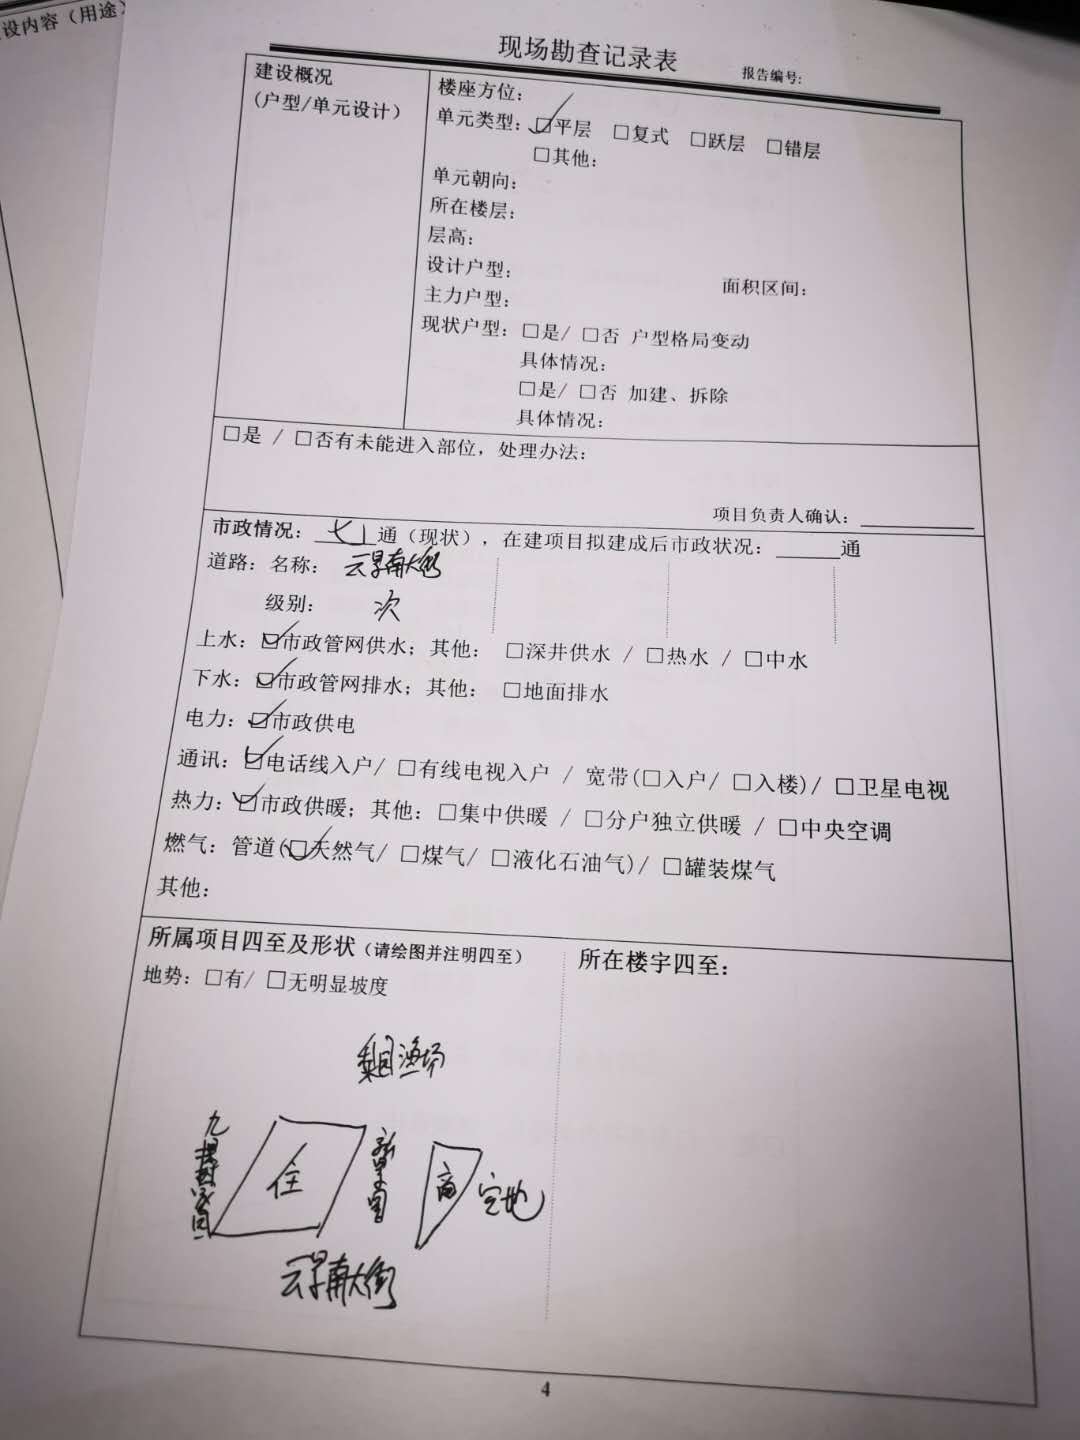 设内容（用途）
现场勘查记录表
报告编号:
建设概况
(户型/单元设计)
楼座方位:
单元类型: ☑平层 □复式 □跃层 □错层
□其他:
单元朝向:
所在楼层:
层高:
设计户型: 面积区间:
主力户型:
现状户型: □是/ □否 户型格局变动
具体情况:
□是/ □否 加建、拆除
具体情况:
□是 / □否有未能进入部位，处理办法:
项目负责人确认:
市政情况: 七 通（现状），在建项目拟建成后市政状况: 通
道路: 名称: 南大街
级别: 次
上水: ☑市政管网供水; 其他: □深井供水 / □热水 / □中水
下水: ☑市政管网排水; 其他: □地面排水
电力: ☑市政供电
通讯: ☑电话线入户/ □有线电视入户 / 宽带(□入户/ □入楼)/ □卫星电视
热力: ☑市政供暖; 其他: □集中供暖 / □分户独立供暖 / □中央空调
燃气: 管道(☑天然气/ □煤气/ □液化石油气)/ □罐装煤气
其他:
所属项目四至及形状（请绘图并注明四至）
地势: □有/ □无明显坡度
所在楼宇四至:
渔场
住
商
空地
南大街
4